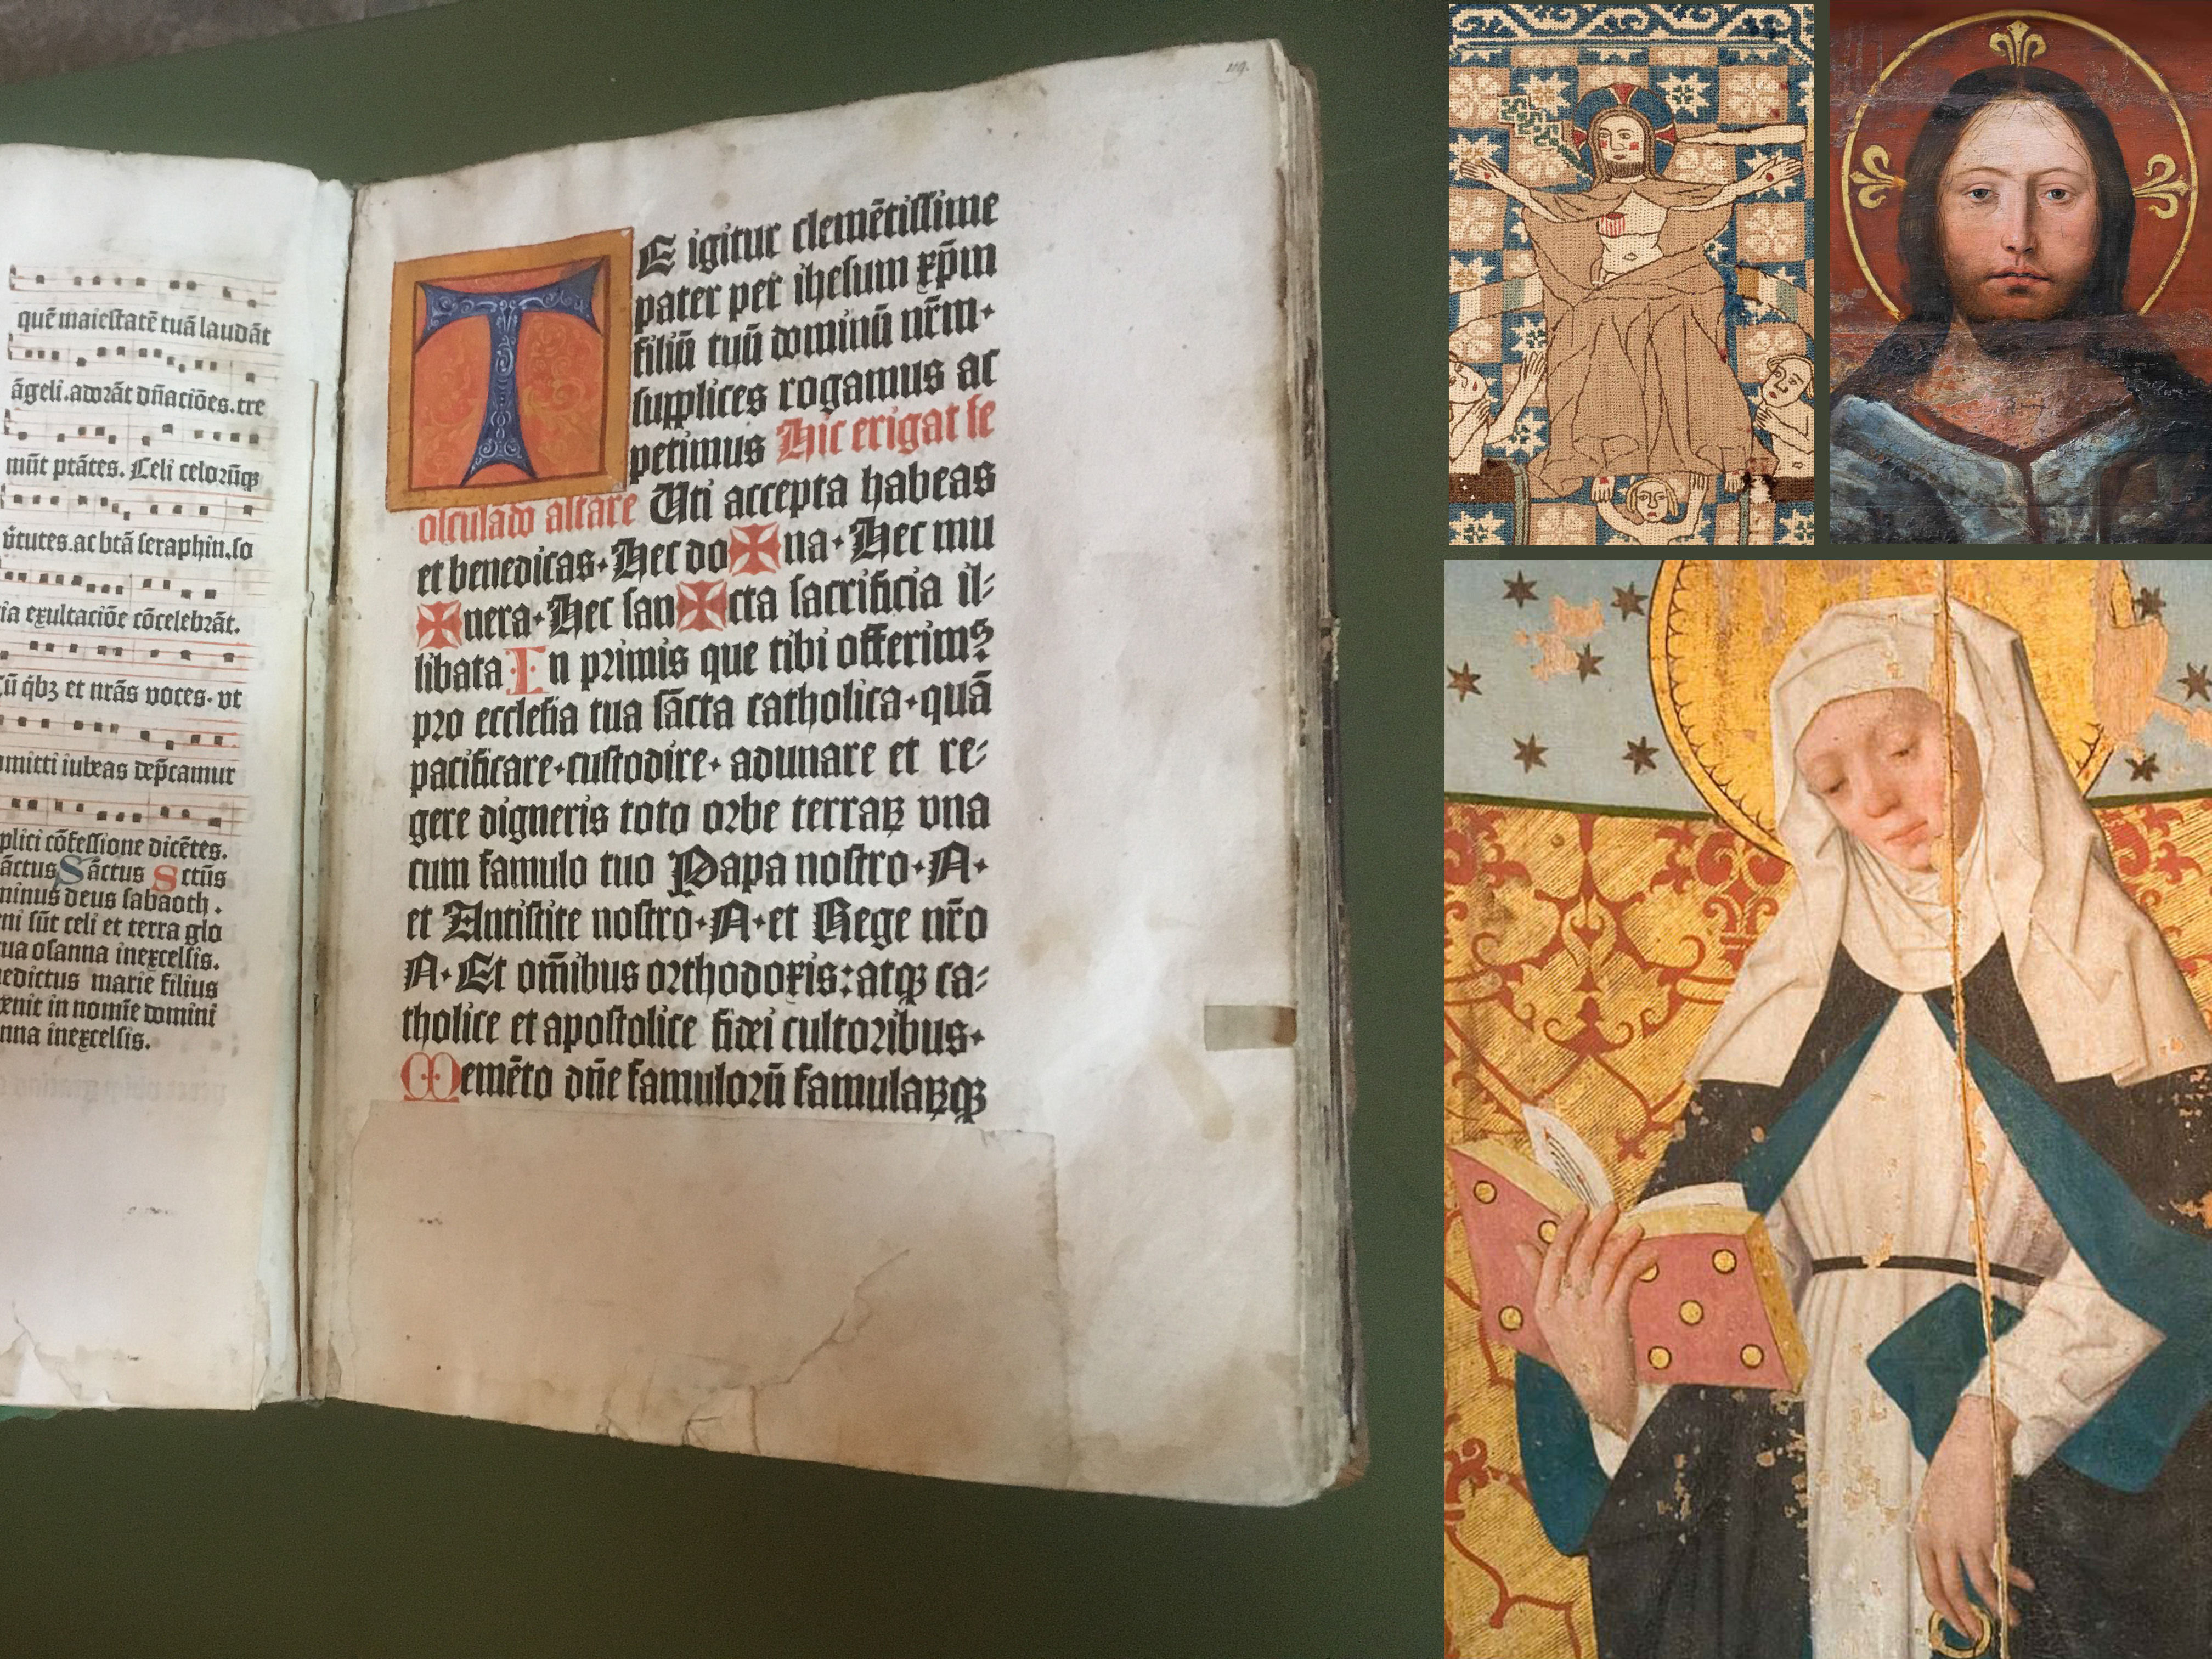 quē maiestatē tuā laudāt
āgeli. adorāt dn̄aciōes. tre
mūt ptātes. Celi celorūqꝫ
v̄tutes. ac btā seraphin. so
ia exultaciōe cōcelebrāt.
Cū qͥbꝫ et nrās voces. vt
mitti iubeas dep̄camur
plici cōfessione dicētes.
āctus Sāctus Sctūs
minus deus sabaoth.
ni sūt celi et terra glo
tua osanna inexcelsis.
edictus marie filius
venit in nomīe domini
nna inexcelsis.
TE igitur clemētissime
pater per ihesum xp̄m
filiū tuū dominū nr̄m.
supplices rogamus ac
petimus Hic erigat se
osculado altare Uti accepta habeas
et benedicas. Hec do✠na. Hec mu
✠nera. Hec san✠cta sacrificia il⸗
libata In primis que tibi offerimꝰ
pro ecclesia tua sācta catholica. quā
pacificare. custodire. adunare et re⸗
gere digneris toto orbe terraꝝ vna
cum famulo tuo Papa nostro. N.
et Antistite nostro. N. et Rege nr̄o
N. Et om̄ibus orthodoxis: atqꝫ ca⸗
tholice et apostolice fidei cultoribus.
Memēto dn̄e famulorū famulaꝝqꝫ